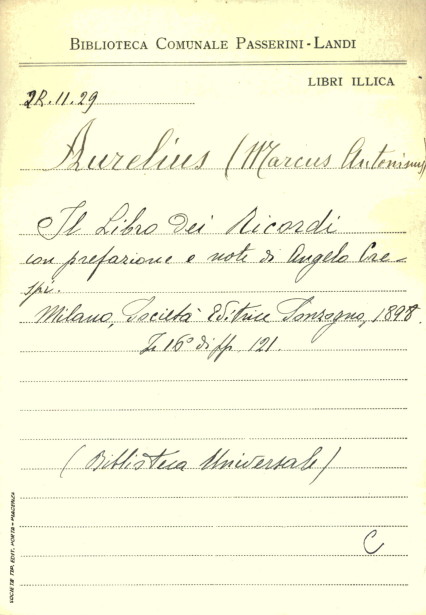 BIBLIOTECA COMUNALE PASSERINI-LANDI
LIBRI ILLICA
2R.11.29
Aurelius (Marcus Antoninus)
Il Libro dei Ricordi
con prefazione e note di Angelo Cre-
spi.
Milano, Società Editrice Sonzogno, 1898.
In 16° di pp. 121.
(Biblioteca Universale)
C
SOCIETÀ TIP. EDIT. PORTA - PIACENZA